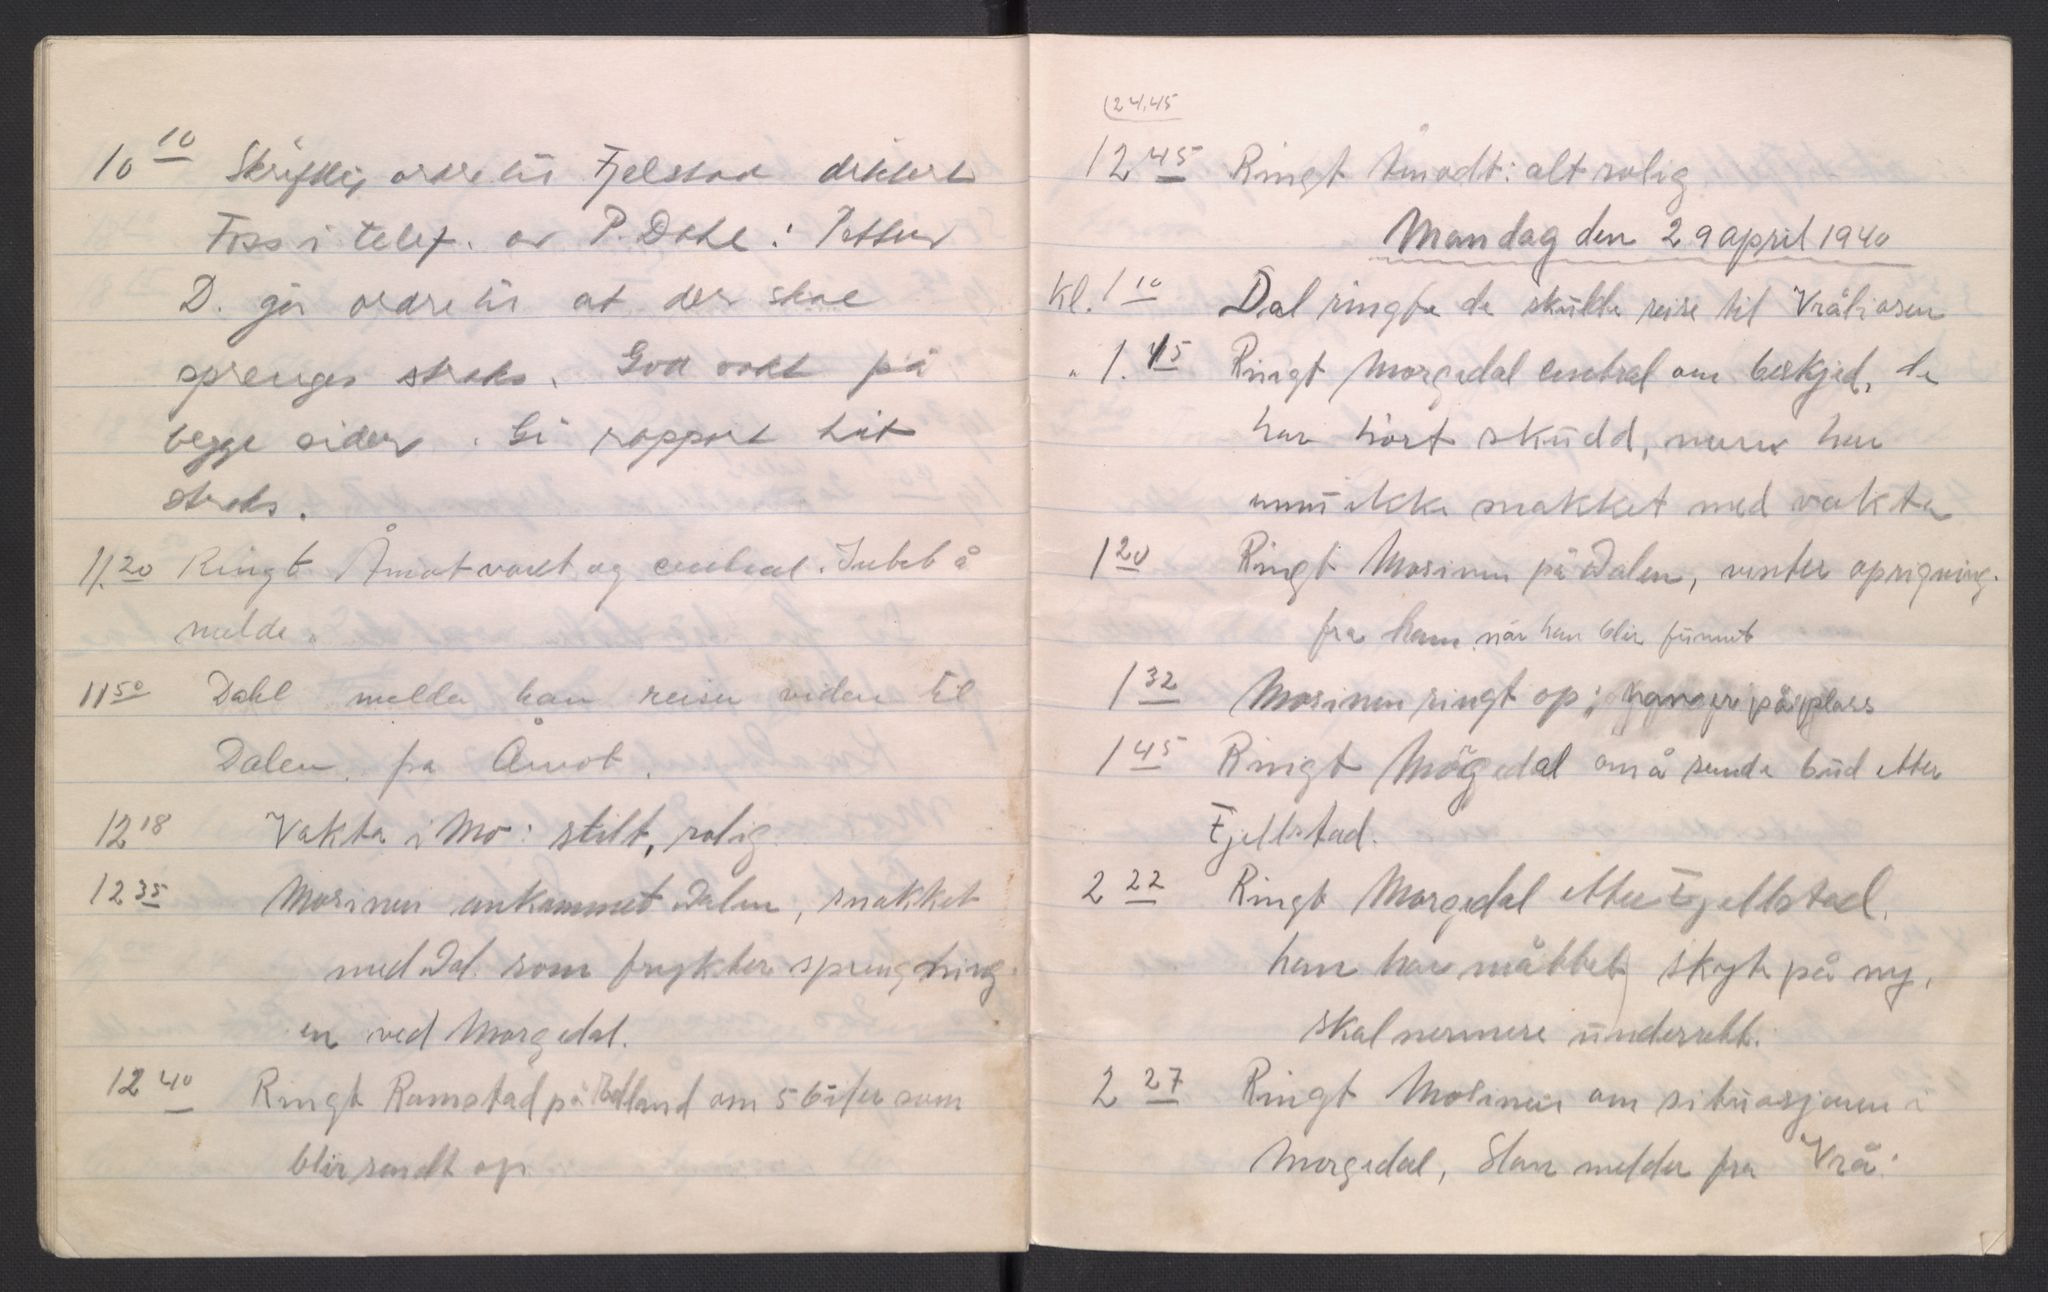 10 10 Skriftlig ordre til Fjelstad diktert
Foss i telef. av P. Dahl: Petter
D. gir ordre til at der skal
sprenges straks. God vakt på
begge sider. Gi rapport hit
straks.
11.20 Ringt Åmot vakt og central. Intet å
melde.
11 50 Dahl melder han reiser videre til
Dalen fra Åmot.
12 18 Vakta i Mo: stilt, rolig
12 35 Mosinen ankommet Dalen, snakket
med Dal som frykter sprengning
en ved Morgedal.
12 40 Ringt Ramstad på Edland om 5 biler som
blir sendt op
(24.45
12 45 Ringt Åmodt: alt rolig
Mandag den 29 april 1940
Kl. 1 10 Dal ringte de skulde reise til Vråliosen
" 1.15 Ringt Morgedal central om beskjed, de
har hørt skudd, men har
ennu ikke snakket med vakta
1 20 Ringt Mosinen på Dalen, venter oprigning
fra ham når han blir funnet
1 32 Mosinen ringt op; på plass
1 45 Ringt Mögedal om å sende bud etter
Fjellstad.
2 22 Ringt Morgedal etter Fjellstad.
han har måttet skyte på ny,
skal nermere underrett.
2 27 Ringt Mosinen om situasjonen i
Morgedal, Han melder fra Vrå: